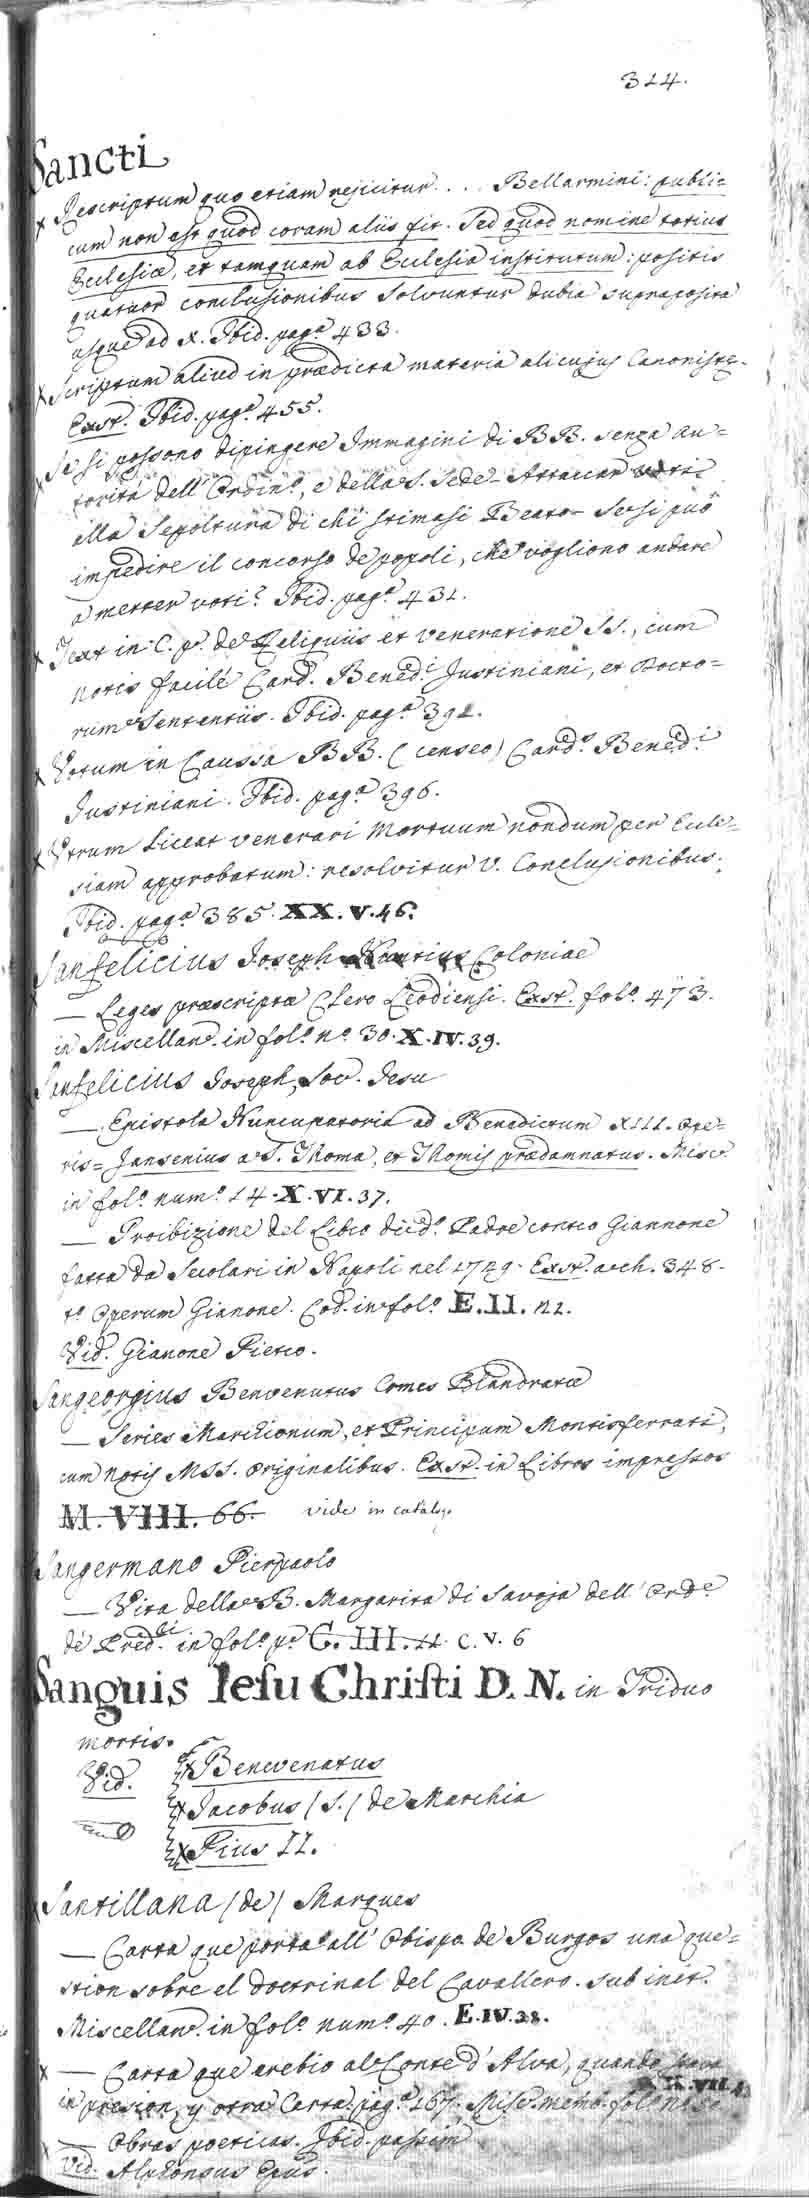 314.
Sancti
x Rescriptum quo etiam rejicitur .... Bellarmini: publi=
cum non est quod coram aliis fit. Sed quod nomine totius
Ecclesiæ, et tamquam ab Ecclesia institutum: positis
quatuor conclusionibus solvuntur dubia supraposita
usque ad x. Ibid. pag.ª 433.
x Scriptum aliud in prædicta materia alicujus Canonistæ.
Exst. Ibid. pag.ª 455.
x Se si possono dipingere Immagini di BB. senza au=
torità dell' Ordin.º, e della S. Sede = Attaccar voti
alla Sepoltura di chi stimasi Beato = Se si può
impedire il concorso de popoli, che vogliono andare
a metter voti? Ibid. pag.ª 431.
x Text in C. p.º de Reliquiis et veneratione SS., cum
notis facilè Card. Bened.i Justiniani, et Docto=
rum Sententiis. Ibid. pag.ª 391.
x Votum in Caussa BB. (censeo) Card.s Bened.i
Justiniani. Ibid. pag.ª 396.
x Utrum liceat venerari mortuum nondum per Eccle=
siam approbatum: resolvitur V. Conclusionibus.
Ibid. pag.ª 385. XX.V.46.
Sanfelicius Joseph Nuntius Coloniae
— Leges præscriptæ Clero Leodiensi. Exst. fol.º 473.
in Miscellan. in fol.º n.º 30. X.IV.39.
Sanfelicius Joseph, Soc. Jesu
— Epistola Nuncupatoria ad Benedictum XIII. Ope=
ris = Jansenius a S. Thoma, et Thomis prædamnatus. Misc.
in fol.º num.º 14. X.VI.37.
— Proibizione del Libro di d.º Padre contro Giannone
fatta da Secolari in Napoli nel 1729. Exst. a ch. 348.
t.º Operum Gianone. Cod. in fol.º E.II. n1.
Vid. Gianone Pietro.
Sangeorgius Benvenutus Comes Blandratæ
— Series Marchionum, et Principum Montisferrati,
cum notis MSS. originalibus. Exst. in Libros impressos
M. VIII. 66. vide in catalogo
Sangermano Pierpaolo
— Vita della B. Margarita di Savoja dell' Ord.e
de' Pred.ri in fol.º p.º C. III. 11. C. V. 6
Sanguis Iesu Christi D. N. in Triduo
mortis.
Vid. x Benevenatus
x Jacobus (S.) de Marchia
x Pius II.
Santillana (de) Marques
— Carta que porta all' Obispo de Burgos una que=
stion sobre el doctrinal del Cavallero. sub init.
Miscellan. in fol.º num.º 40. E.IV.28.
x — Carta que enebio al Conte d'Alva, quando
in presion, y otra Carta. pag.ª 167. Misc. memb. fol.º X.VII.
— Obras poeticas. Ibid. passim
Vid. Alphonsus Epus.